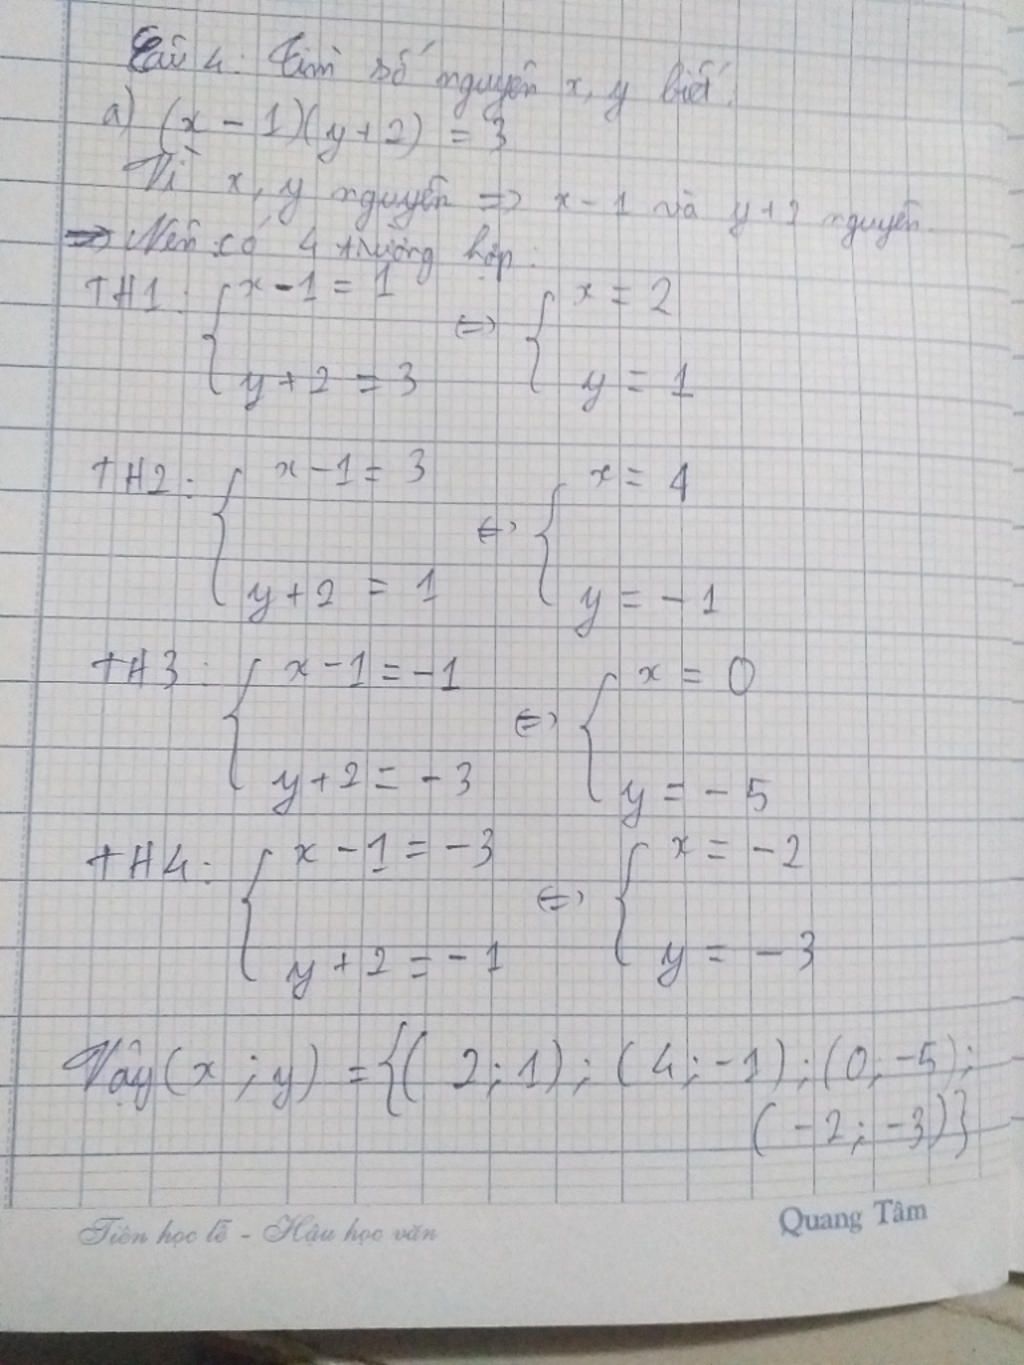 Câu 4: Tìm số nguyên x, y biết:
a) (x - 1)(y + 2) = 3
Vì x, y nguyên => x - 1 và y + 2 nguyên.
=> Nên có 4 trường hợp:
TH1: { x - 1 = 1 <=> { x = 2
y + 2 = 3 y = 1
TH2: { x - 1 = 3 <=> { x = 4
y + 2 = 1 y = - 1
TH3: { x - 1 = - 1 <=> { x = 0
y + 2 = - 3 y = - 5
TH4: { x - 1 = - 3 <=> { x = - 2
y + 2 = - 1 y = - 3
Vậy (x ; y) = {( 2 ; 1) ; ( 4 ; -1) ; (0 ; -5) ;
( -2 ; -3)}
Tiên học lễ - Hậu học văn
Quang Tâm